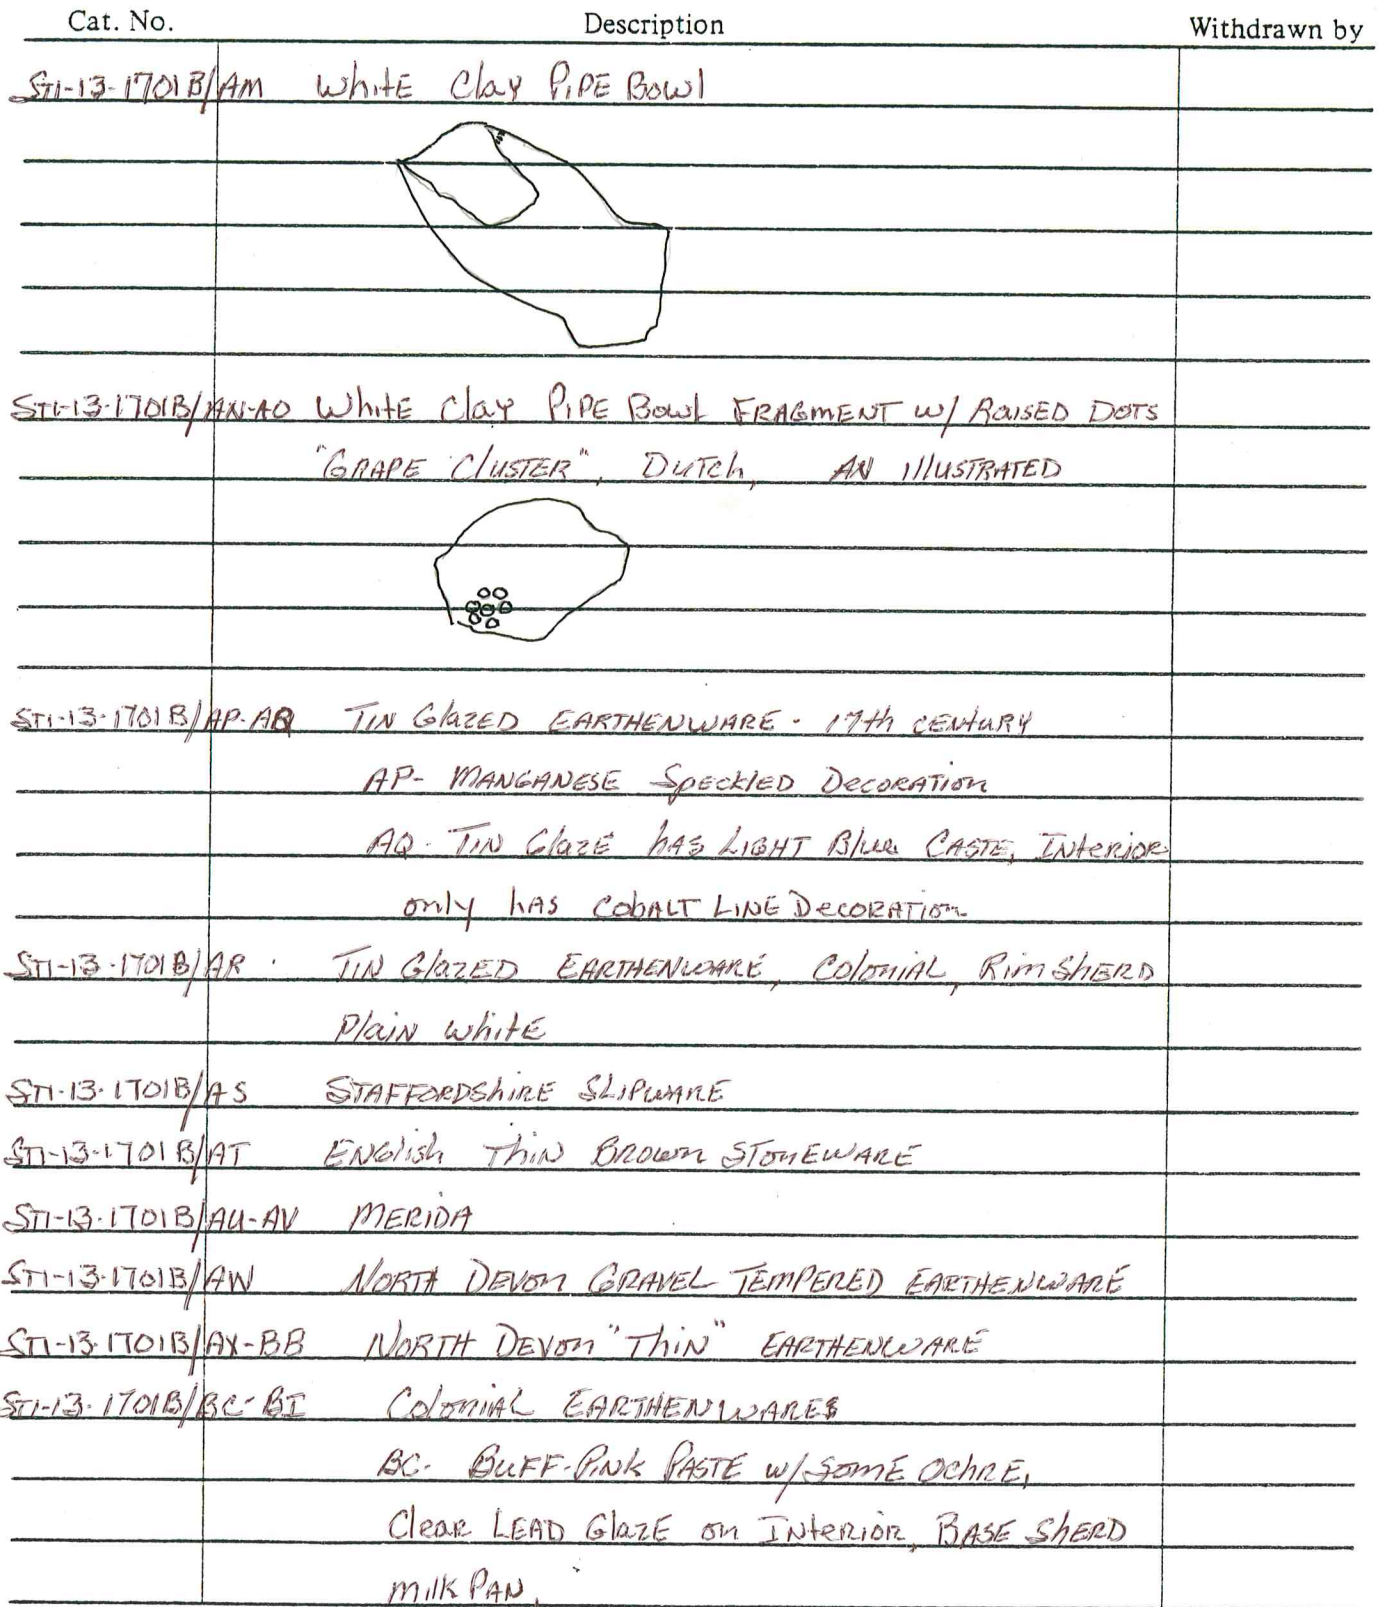 Cat. No. Description Withdrawn by
ST1-13-1701B/AM White Clay PIPE Bowl
ST1-13-1701B/AN-AO White Clay PIPE Bowl FRAGMENT w/ RAISED DOTS
"GRAPE CLUSTER", DUTCH, AN IllUSTRATED
ST1-13-1701B/AP-AQ TIN GlAZED EARTHENWARE - 17th CENTURY
AP- MANGANESE SPECKlED DECORATION
AQ- TIN GlAZE hAS LIGHT Blue CASTE, INTERIOR
only hAS CObALT LINE DECORATION
ST1-13-1701B/AR TIN GlAZED EARTHENWARE, COlONIAL, Rim ShERD
Plain White
ST1-13-1701B/AS STAFFORDShIRE SLIPWARE
ST1-13-1701B/AT ENGlish Thin BROWN STONEWARE
ST1-13-1701B/AU-AV MERIDA
ST1-13-1701B/AW NORTH DEVON GRAVEL TEMPERED EARTHENWARE
ST1-13-1701B/AX-BB NORTH DEVON "Thin" EARTHENWARE
ST1-13-1701B/BC-BI COlONIAL EARTHENWARES
BC- BUFF-PINK PASTE w/ SOME OChRE,
Clear LEAD GlAZE on INTERIOR, BASE ShERD
MilK PAN.